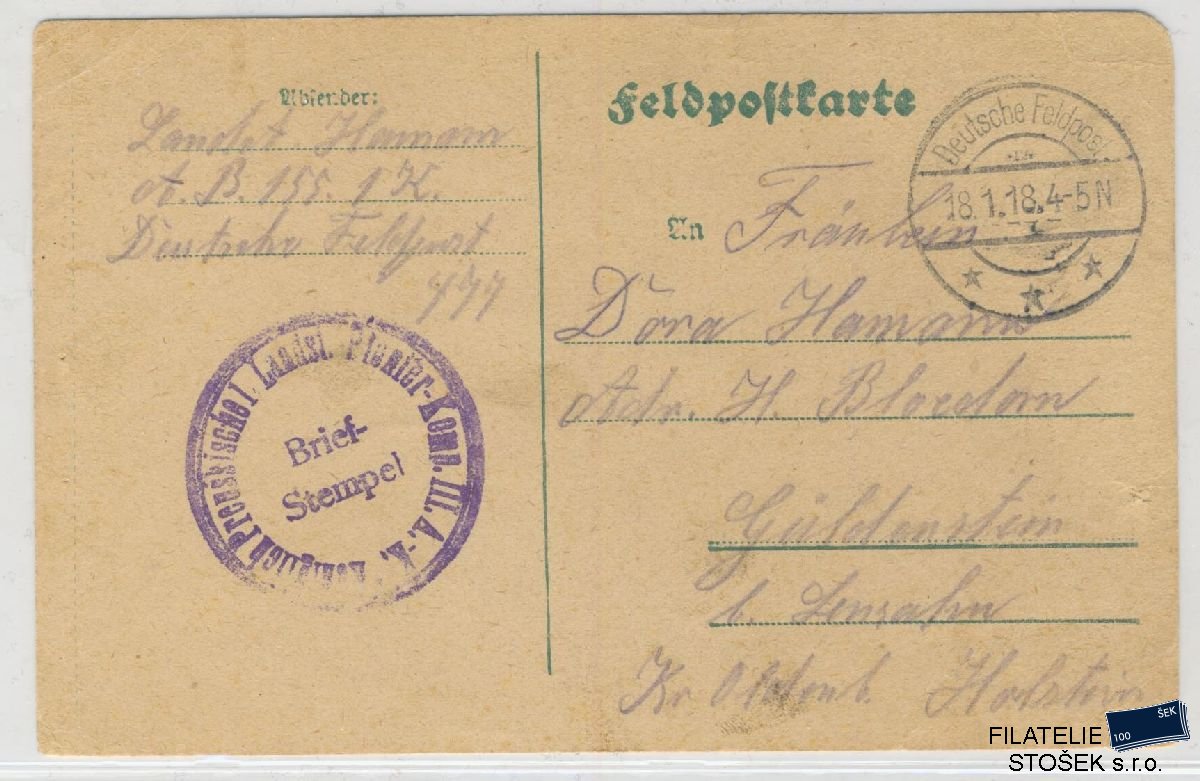 Absender:
Landst Hamann
A. B. 155. 1 K.
Deutsche Feldpost
477
Feldpostkarte
Deutsche Feldpost
18.1.18.4-5N
An Fräulein
Dora Hamann
Adr. H.
Güldenstein
b. Lensahn
Kr Oldenb. Holstein
Königlich Preussische Landst. Pionier-Komp. III. A.-K.
Brief-
Stempel
FILATELIE
STOŠEK s.r.o.
100
ŠEK